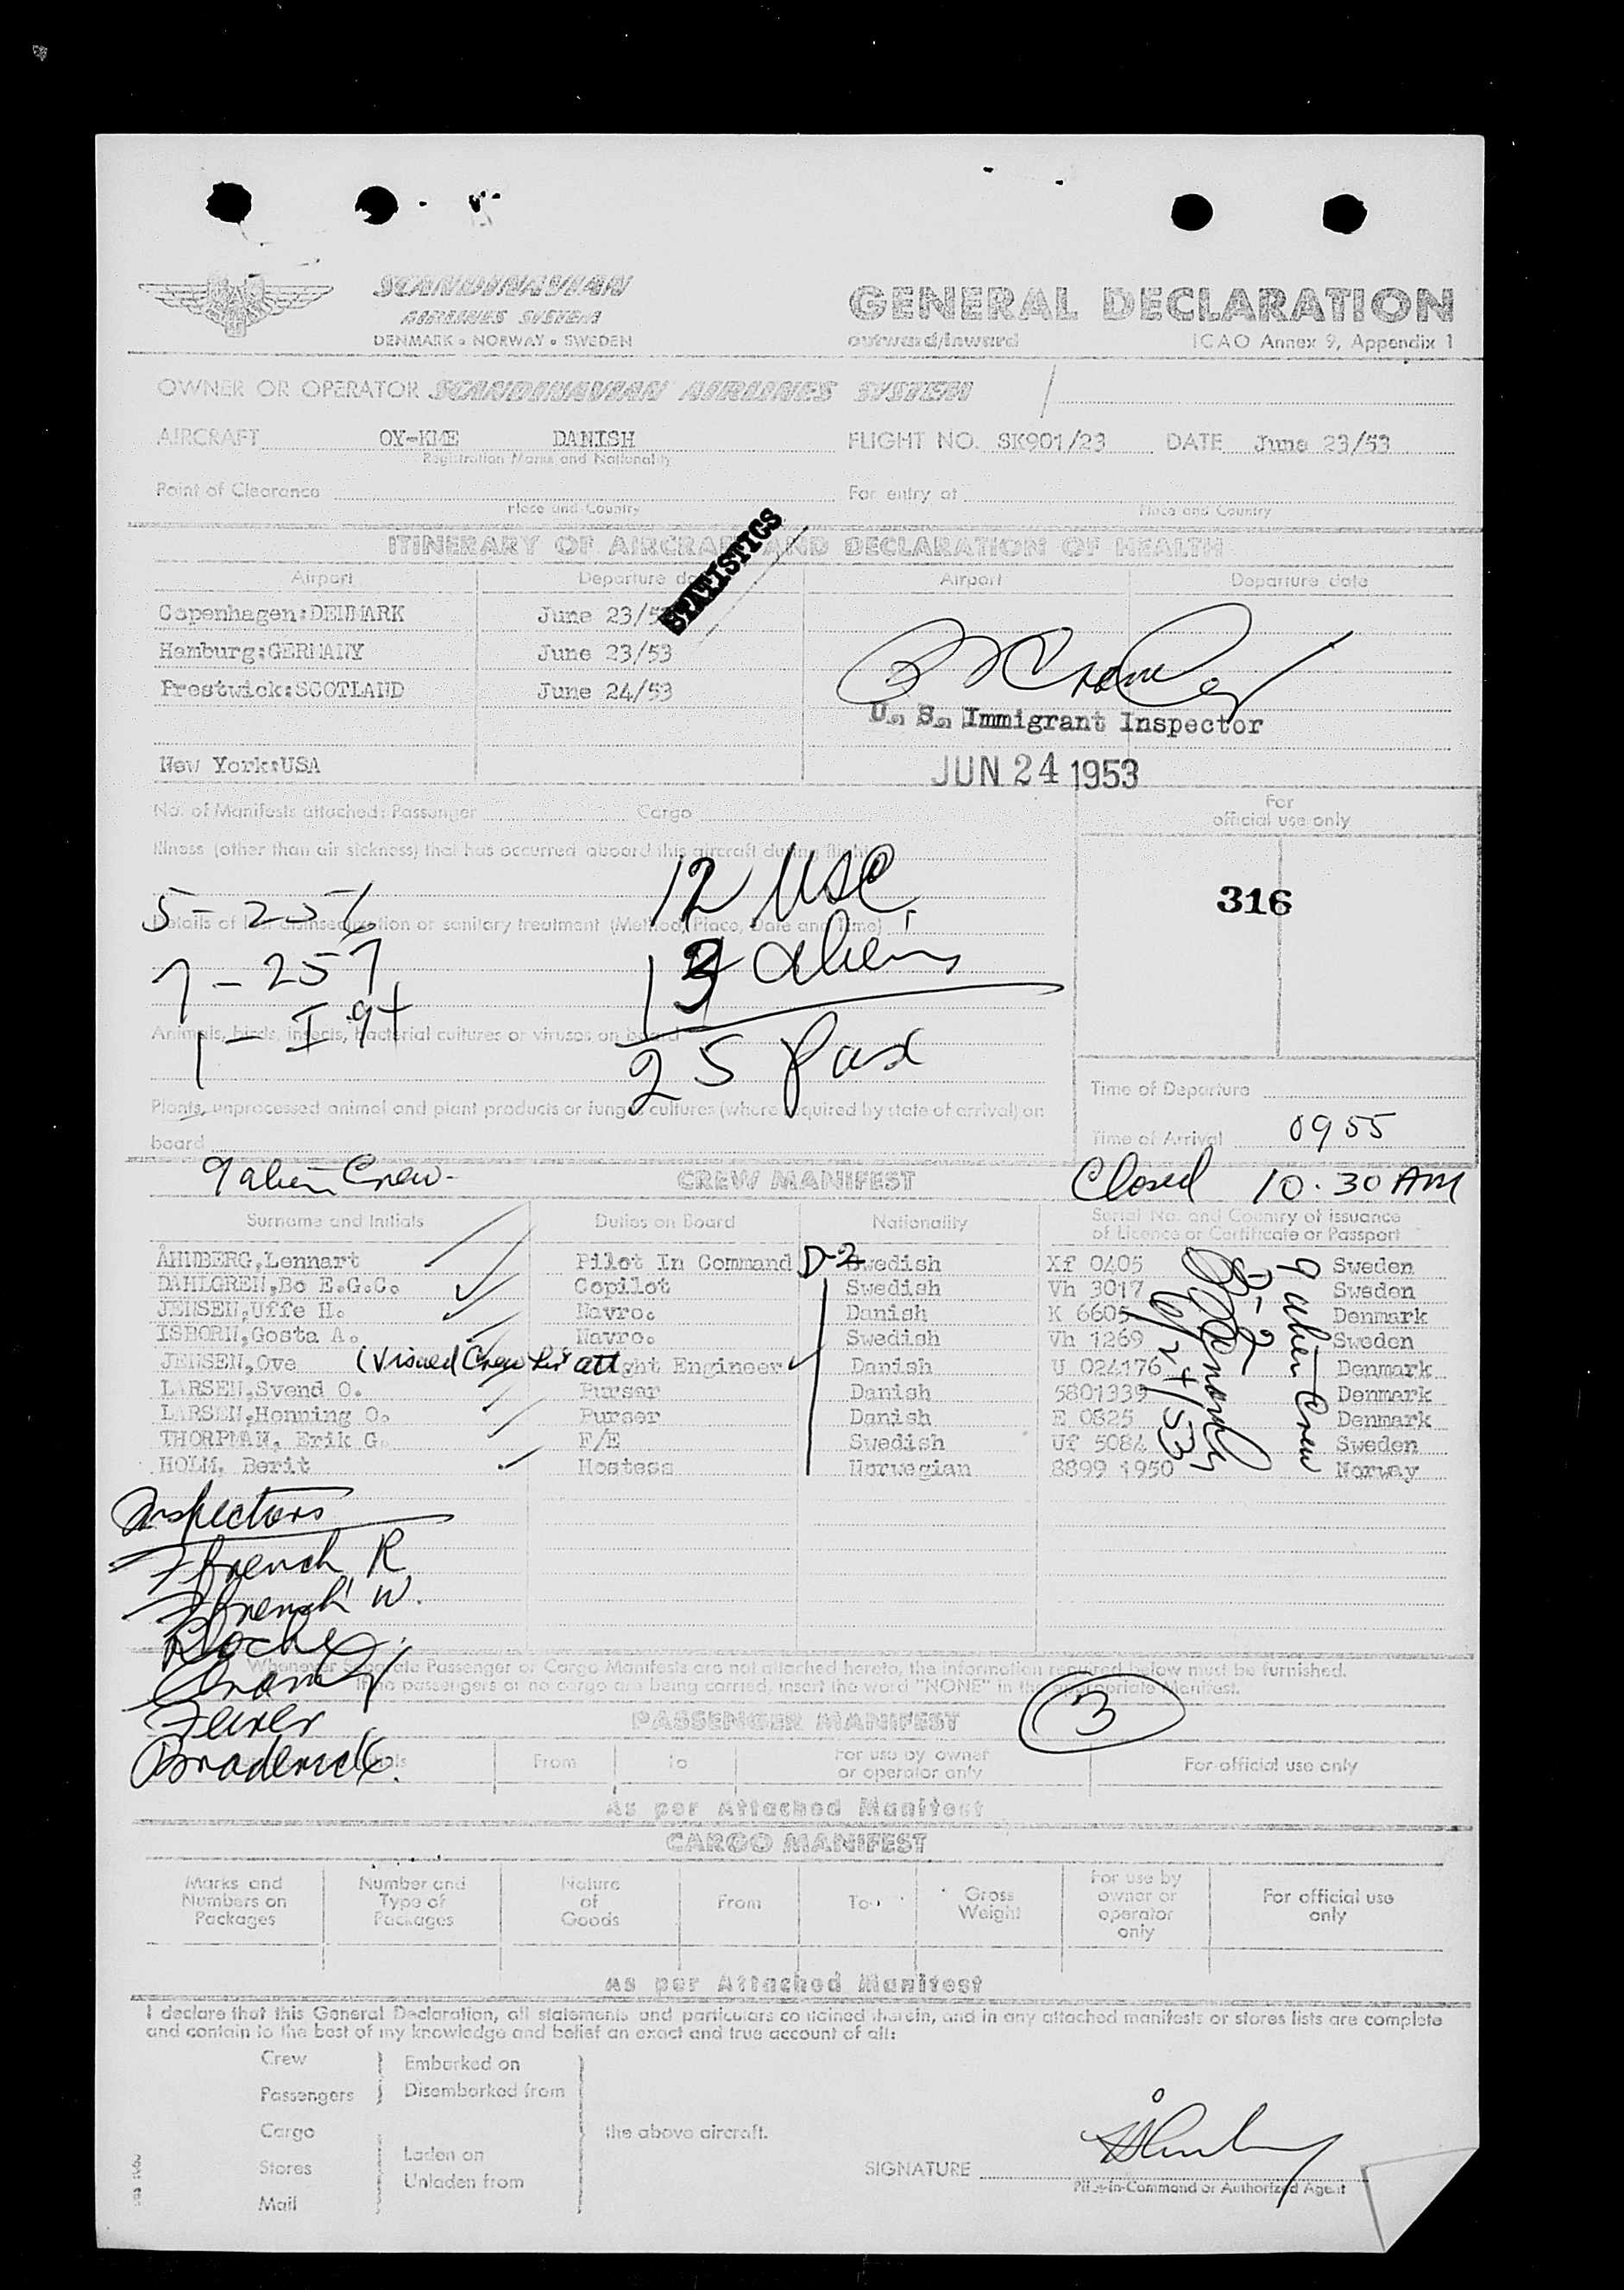 SCANDINAVIAN
AIRLINES SYSTEM
DENMARK • NORWAY • SWEDEN
GENERAL DECLARATION
outward/inward
ICAO Annex 9, Appendix 1
OWNER OR OPERATOR SCANDINAVIAN AIRLINES SYSTEM
AIRCRAFT OY-KME DANISH FLIGHT NO. SK901/23 DATE June 23/53
Registration Marks and Nationality
Point of Clearance For entry at
Place and Country Place and Country
STATISTICS
ITINERARY OF AIRCRAFT AND DECLARATION OF HEALTH
Airport Departure date Airport Departure date
Copenhagen:DENMARK June 23/53
Hamburg:GERMANY June 23/53
Prestwick:SCOTLAND June 24/53
U. S. Immigrant Inspector
New York:USA
JUN 24 1953
No. of Manifests attached: Passenger Cargo
For
official use only
Illness (other than air sickness) that has occurred aboard this aircraft during flight
12 USC
316
5-257
Details of last disinsectization or sanitary treatment (Method, Place, Date and Time)
13 aliens
7-257
1-I 94
Animals, birds, insects, bacterial cultures or viruses on board
25 Pax
Time of Departure
Plants, unprocessed animal and plant products or fungus cultures (where required by state of arrival) on
board
Time of Arrival 0955
9 alien Crew-
CREW MANIFEST
Closed 10.30 AM
Surname and Initials Duties on Board Nationality Serial No. and Country of issuance
of Licence or Certificate or Passport
ÅHNBERG,Lennart Pilot In Command D-2 Swedish Xf 0405 Sweden
DAHLGREN,Bo E.G.C. Copilot Swedish Vh 3017 Sweden
JENSEN,Uffe H. Navro. Danish K 6605 Denmark
ISBORN,Gosta A. Navro. Swedish Vh 1269 Sweden
JENSEN,Ove (Visaed Crew list att ght Engineer Danish U 024176 Denmark
LARSEN,Svend O. Purser Danish 5801339 Denmark
LARSEN,Henning O. Purser Danish E 0825 Denmark
THORPMAN, Erik G. F/E Swedish Uf 5084 Sweden
HOLM, Berit Hostess Norwegian 8899 1950 Norway
D-2
6/24/53
9 alien Crew
Inspectors
Ffrench R
Ffrench W.
Roche
Cromley
Feirer
Broderick.
Whenever Separate Passenger or Cargo Manifests are not attached hereto, the information required below must be furnished.
If no passengers or no cargo are being carried, insert the word "NONE" in the appropriate Manifest.
3
PASSENGER MANIFEST
From To For use by owner
or operator only
For official use only
As per Attached Manifest
CARGO MANIFEST
Marks and
Numbers on
Packages
Number and
Type of
Packages
Nature
of
Goods
From
To
Gross
Weight
For use by
owner or
operator
only
For official use
only
As per Attached Manifest
I declare that this General Declaration, all statements and particulars contained therein, and in any attached manifests or stores lists are complete
and contain to the best of my knowledge and belief an exact and true account of all:
Crew
Passengers
Embarked on
Disembarked from
Cargo
Stores
Mail
Laden on
Unladen from
the above aircraft.
SIGNATURE
Pilot-in-Command or Authorized Agent